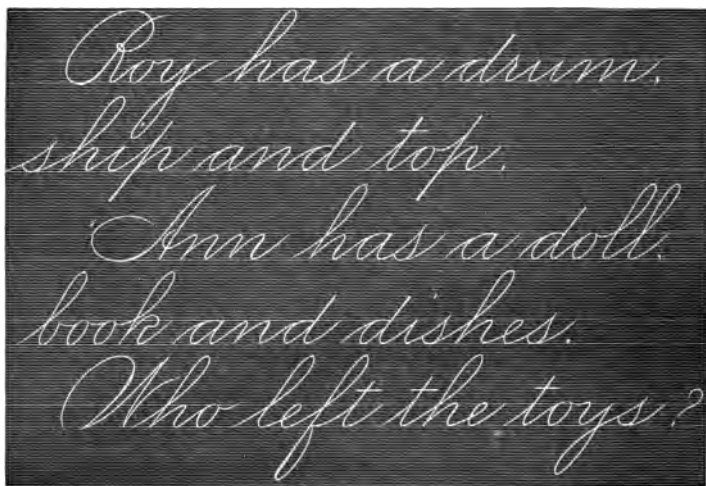 Roy has a drum,
ship and top.
Ann has a doll,
book and dishes.
Who left the toys?